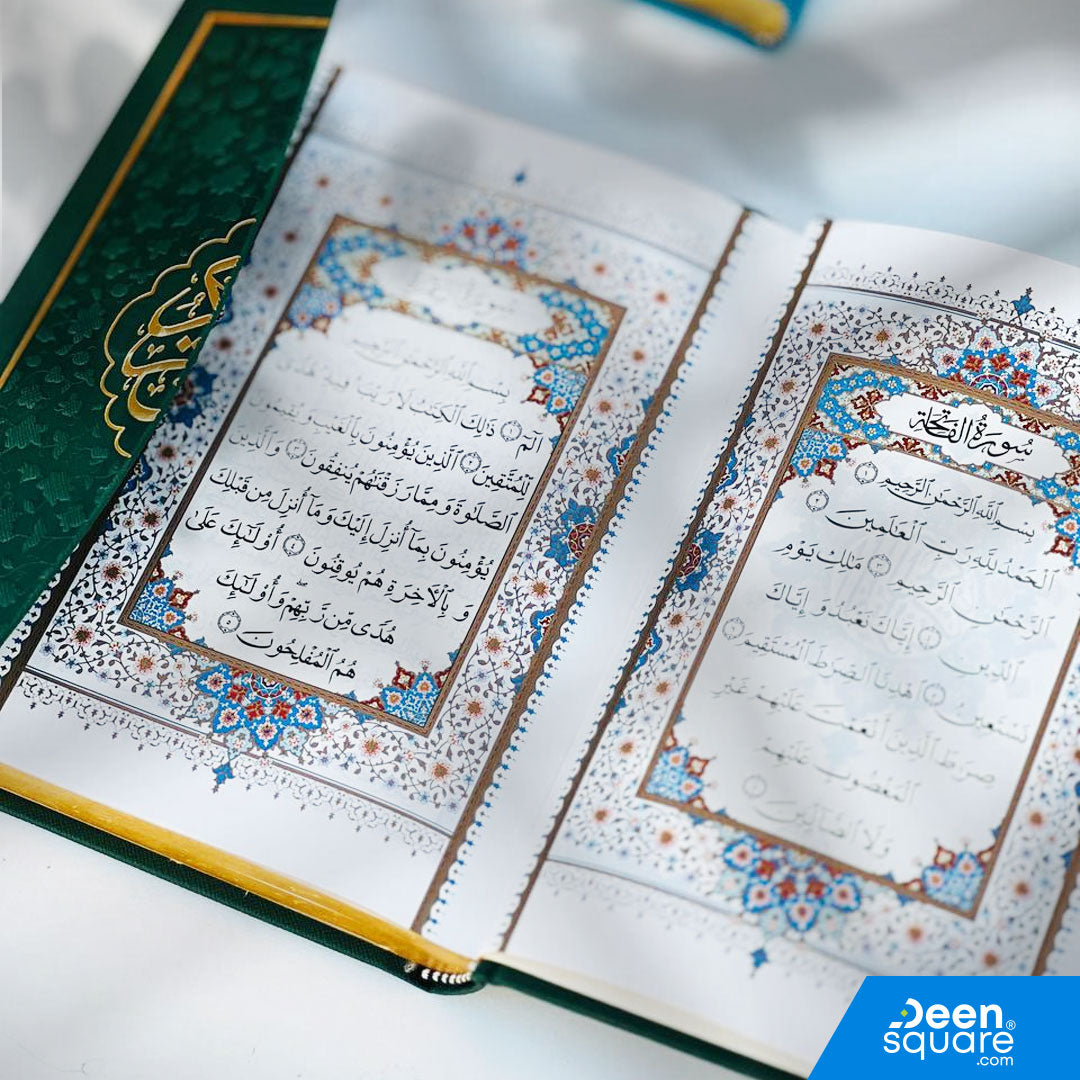 سُورَةُ الفَاتِحَةِ
بِسْمِ ٱللَّهِ ٱلرَّحْمَٰنِ ٱلرَّحِيمِ ١
ٱلْحَمْدُ لِلَّهِ رَبِّ ٱلْعَٰلَمِينَ ٢
ٱلرَّحْمَٰنِ ٱلرَّحِيمِ ٣ مَٰلِكِ يَوْمِ
ٱلدِّينِ ٤ إِيَّاكَ نَعْبُدُ وَإِيَّاكَ
نَسْتَعِينُ ٥ ٱهْدِنَا ٱلصِّرَٰطَ ٱلْمُسْتَقِيمَ ٦
صِرَٰطَ ٱلَّذِينَ أَنْعَمْتَ عَلَيْهِمْ غَيْرِ
ٱلْمَغْضُوبِ عَلَيْهِمْ
وَلَا ٱلضَّآلِّينَ ٧
بِسْمِ ٱللَّهِ ٱلرَّحْمَٰنِ ٱلرَّحِيمِ
الٓمٓ ١ ذَٰلِكَ ٱلْكِتَٰبُ لَا رَيْبَ فِيهِ هُدًى
لِّلْمُتَّقِينَ ٢ ٱلَّذِينَ يُؤْمِنُونَ بِٱلْغَيْبِ وَيُقِيمُونَ
ٱلصَّلَوٰةَ وَمِمَّا رَزَقْنَٰهُمْ يُنفِقُونَ ٣ وَٱلَّذِينَ
يُؤْمِنُونَ بِمَآ أُنزِلَ إِلَيْكَ وَمَآ أُنزِلَ مِن قَبْلِكَ
وَبِٱلْءَاخِرَةِ هُمْ يُوقِنُونَ ٤ أُو۟لَٰٓئِكَ عَلَىٰ
هُدًى مِّن رَّبِّهِمْ ۖ وَأُو۟لَٰٓئِكَ
هُمُ ٱلْمُفْلِحُونَ ٥
Deen
square®
.com